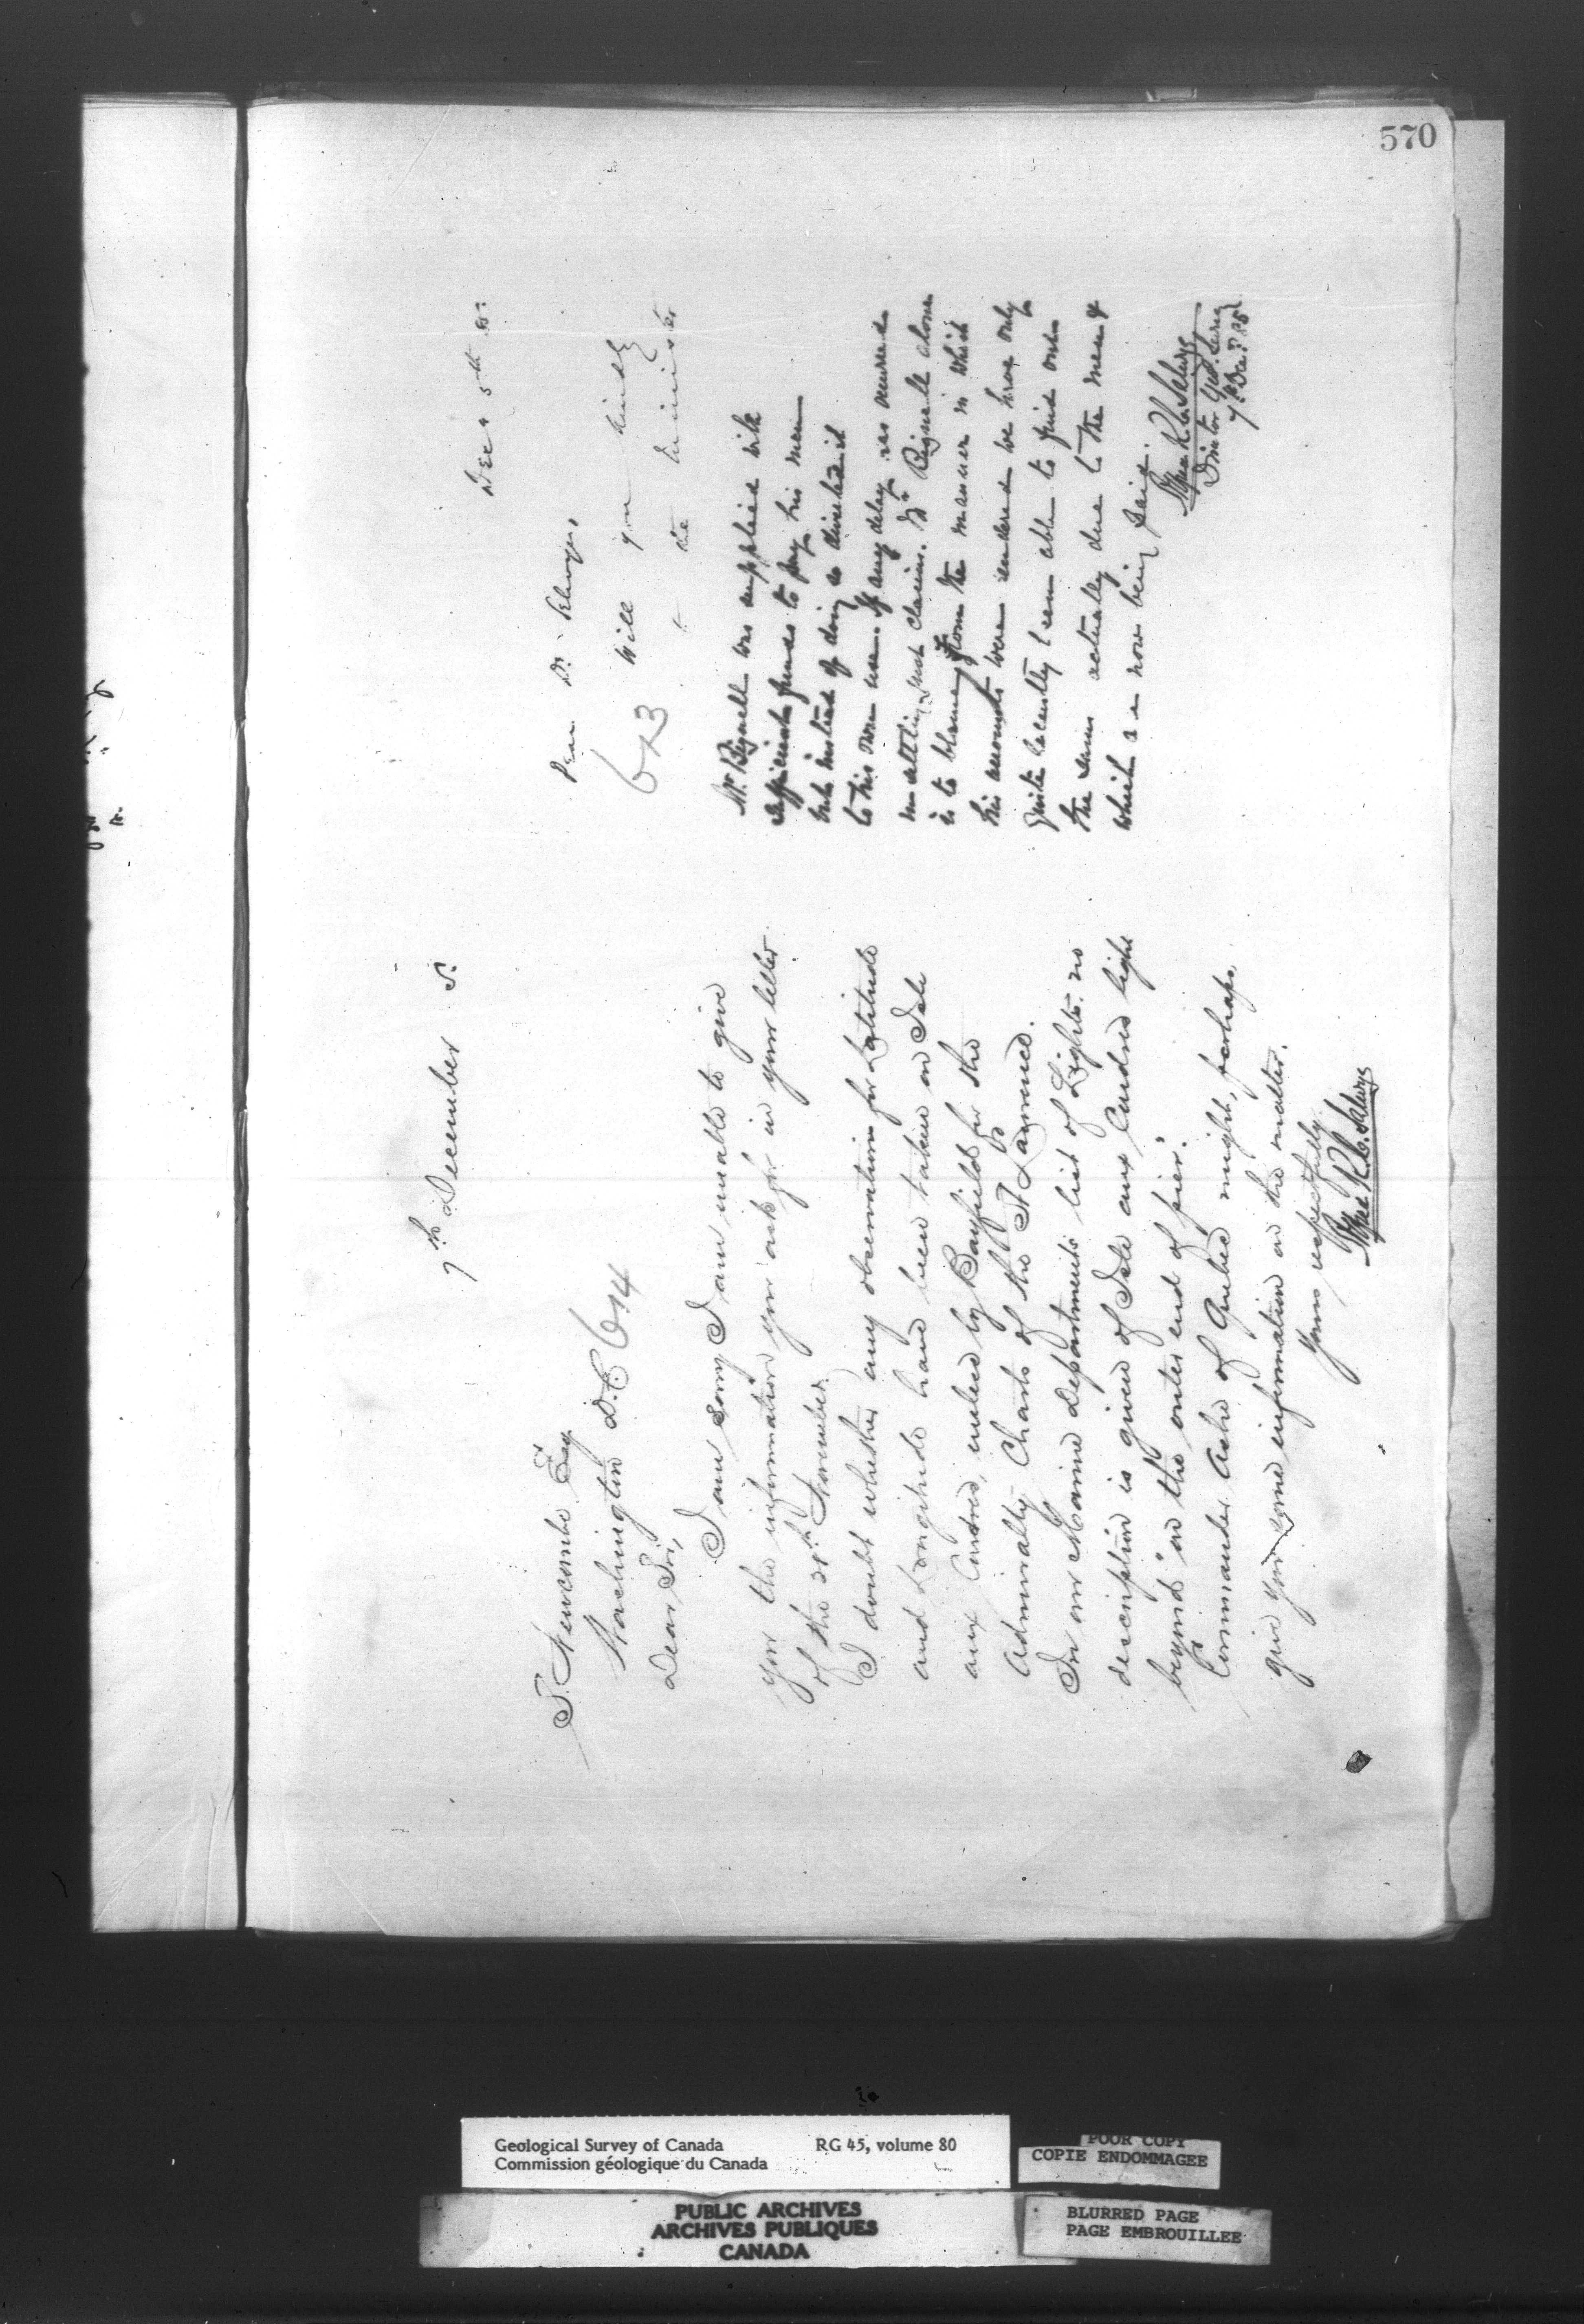 570
7th December 5.
S. Newcombe Esq
Washington D.C. 614
Dear Sir,
I am sorry I am unable to give
you the information you ask for in your letter
of the November.
I doubt whether any observations for Latitude
and Longitude have been taken on Isle
aux Coudres, unless by Bayfield for the
Admiralty Charts of the St Lawrence.
In our Marine Departments list of Lights no
description is given of Isle aux Coudres light
beyond "on the outer end of pier."
Commander Ashe of Quebec might, perhaps,
give you some information on the matter.
Yours respectfully
Alfred R. C. Selwyn
Dec 5th 85
Dear Dr Selwyn,
613
Will you kindly
to the Minister
Mr Bignell was supplied with
sufficient funds to pay his men
but instead of doing so diverted it
to his own use. If any delay has occurred
in settling such claims. Mr Bignell alone
is to blame, from the manner in which
his accounts were rendered we have only
quite recently been able to find out
the sums actually due to the men &
which are now being paid.
Alfred R. C. Selwyn
Director Geol. Survey
7th Dec. 85
Geological Survey of Canada RG 45, volume 80
Commission géologique du Canada
POOR COPY
COPIE ENDOMMAGEE
PUBLIC ARCHIVES
ARCHIVES PUBLIQUES
CANADA
BLURRED PAGE
PAGE EMBROUILLEE